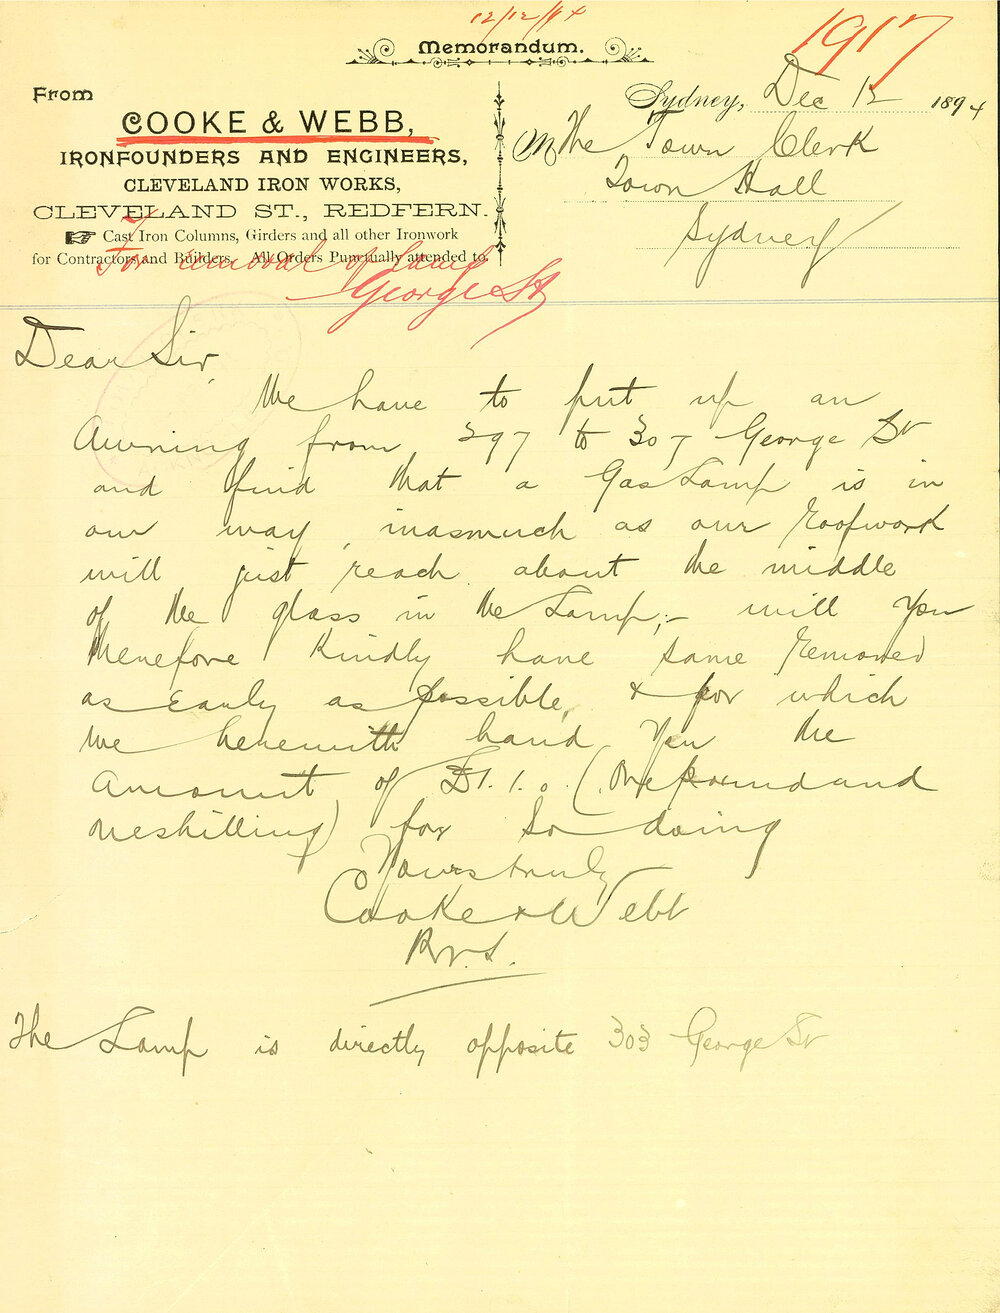 12/12/94
1917
Memorandum.
From
COOKE & WEBB,
IRONFOUNDERS AND ENGINEERS,
CLEVELAND IRON WORKS,
CLEVELAND ST., REDFERN.
Cast Iron Columns, Girders and all other Ironwork
for Contractors and Builders. All Orders Punctually attended to.
For removal of Lamp
George St
Sydney, Dec 12 1894
M The Town Clerk
Town Hall
Sydney
Dear Sir,
We have to put up an
Awning from 297 to 307 George St
and find that a Gas Lamp is in
our way, inasmuch as our Roofwork
will just reach about the middle
of the glass in the Lamp;- will you
therefore Kindly have same Removed
as Early as possible, & for which
we herewith hand you the
Amount of £1.1.0. (One pound and
one shilling) for So doing
Yours truly
Cooke & Webb
The Lamp is directly opposite 303 George St